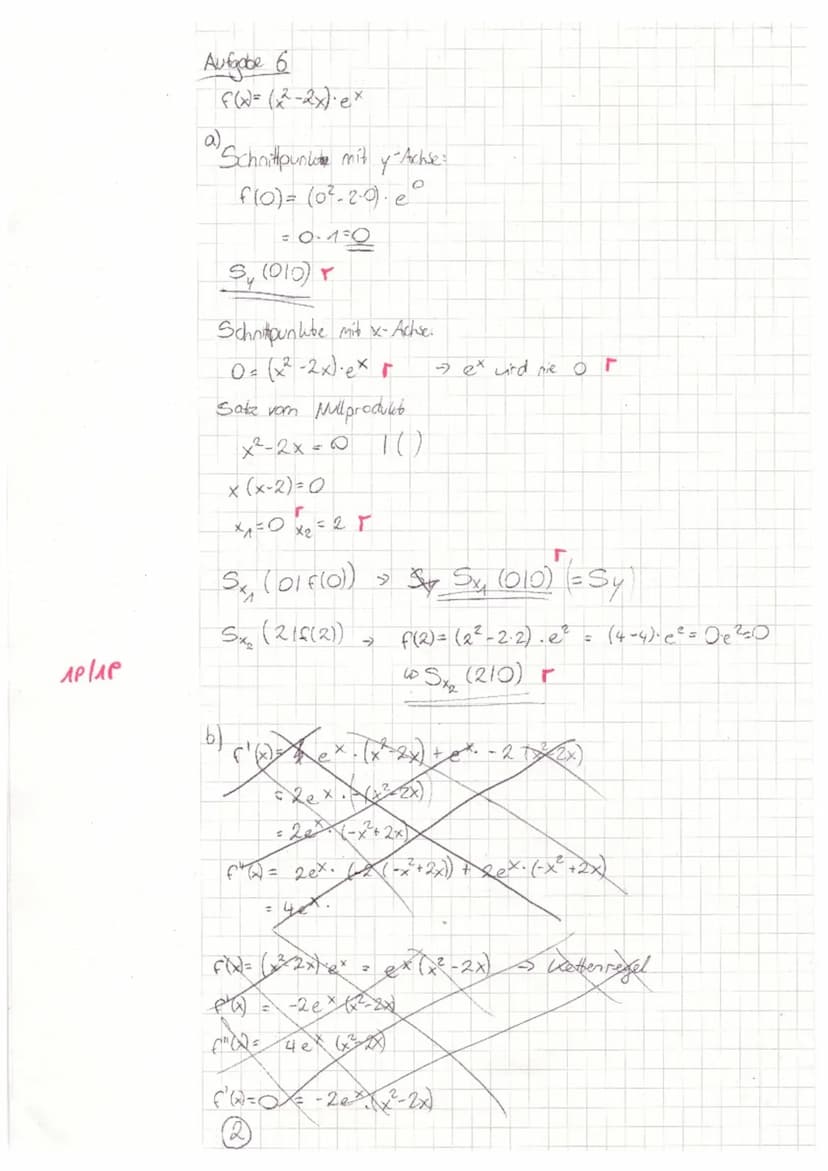 Aufgabe 6
f(x)= (x²-2x)·eˣ
a) Schnittpunkte mit y-Achse:
f(0)= (0²-2·0)·e⁰
= 0·1=0
Sy (0|0) r
Schnittpunkte mit x-Achse.
0= (x²-2x)·eˣ r → eˣ wird nie 0 r
Satz vom Nullprodukt
x²-2x=0 |( )
x(x-2)=0
x₁=0 r x₂=2 r
Sx₁ (0|f(0)) → Sx₁ (0|0) r (=Sy)
Sx₂ (2|f(2)) → f(2)= (2²-2·2)·e² = (4-4)·e²=0·e²=0
1P/1P
↳ Sx₂ (2|0) r
b) f'(x)= eˣ·(x²-2x) + eˣ·-2(x²-2x)
= 2eˣ·(-(x²-2x))
= 2eˣ·(-x²+2x)
f''(x)= 2eˣ·(-2(-x²+2x)) + 2eˣ·(-x²+2x)
= 4eˣ·
f(x)= (x²-2x)·eˣ = eˣ(x²-2x) → Kettenregel
f'(x) = -2eˣ(x²-2x)
f''(x)= 4eˣ (x²-2x)
f'(x)=0 = -2eˣ·(x²-2x)
2